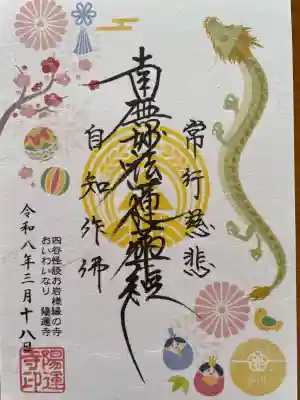 常行慈悲
南無妙法蓮華経
自知作佛
四谷怪談お岩様縁の寺
おいわいなり 陽運寺
令和八年三月十八日
陽運寺印